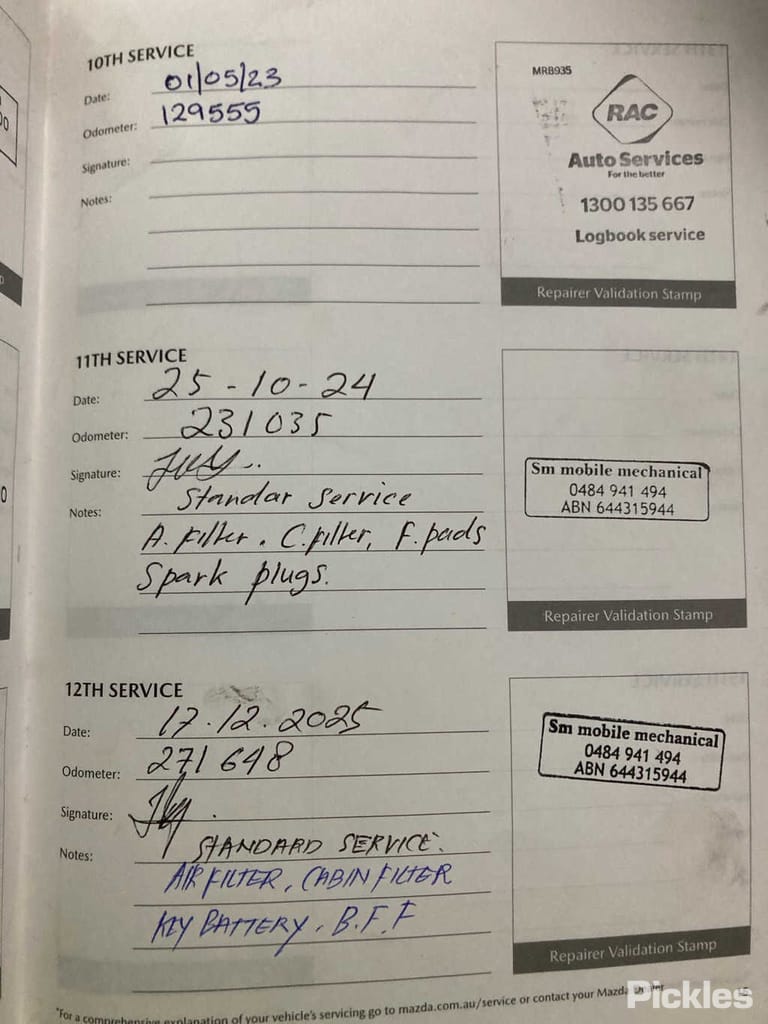 10TH SERVICE
Date: 01/05/23
Odometer: 129555
Signature:
Notes:
MRB935
RAC
Auto Services
For the better
1300 135 667
Logbook service
Repairer Validation Stamp
11TH SERVICE
Date: 25-10-24
Odometer: 231035
Signature:
Notes: Standar Service
A. Filter. C. filter, F. pads
Spark plugs.
Sm mobile mechanical
0484 941 494
ABN 644315944
Repairer Validation Stamp
12TH SERVICE
Date: 17.12.2025
Odometer: 271648
Signature:
Notes: STANDARD SERVICE.
AIR FILTER, CABIN FILTER
KEY BATTERY, B.F.F
Sm mobile mechanical
0484 941 494
ABN 644315944
Repairer Validation Stamp
*For a comprehensive explanation of your vehicle's servicing go to mazda.com.au/service or contact your Mazda Dealer
Pickles